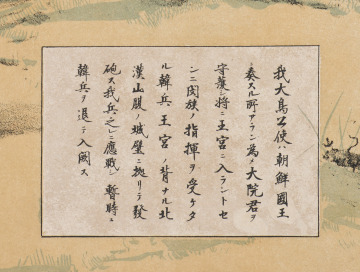 我大鳥公使ハ朝鮮國王
ニ奏スル所アラン爲メ大院君ヲ
守護シ將ニ王宮ニ入ラントセ
シニ閔族ノ指揮ヲ受ケタ
ル韓兵王宮ノ背ナル北
漢山腹ノ城壁ニ拠リテ發
砲ス我兵之レニ應戰シ暫時ニ
韓兵ヲ退ケ入闕ス